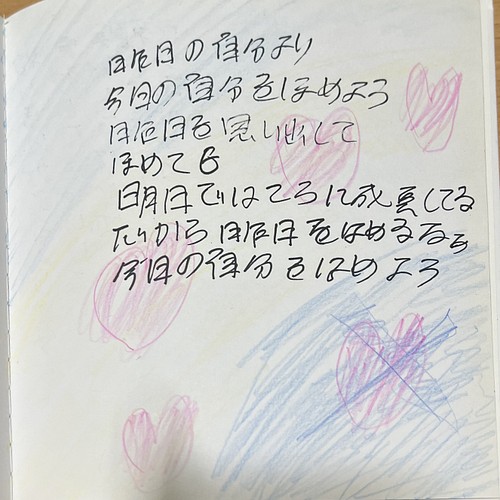 昨日の自分より
今日の自分をほめよう
昨日を思い出して
ほめても
明日ではさらに成長してる
だから昨日をほめるなら
今日の自分をほめよう